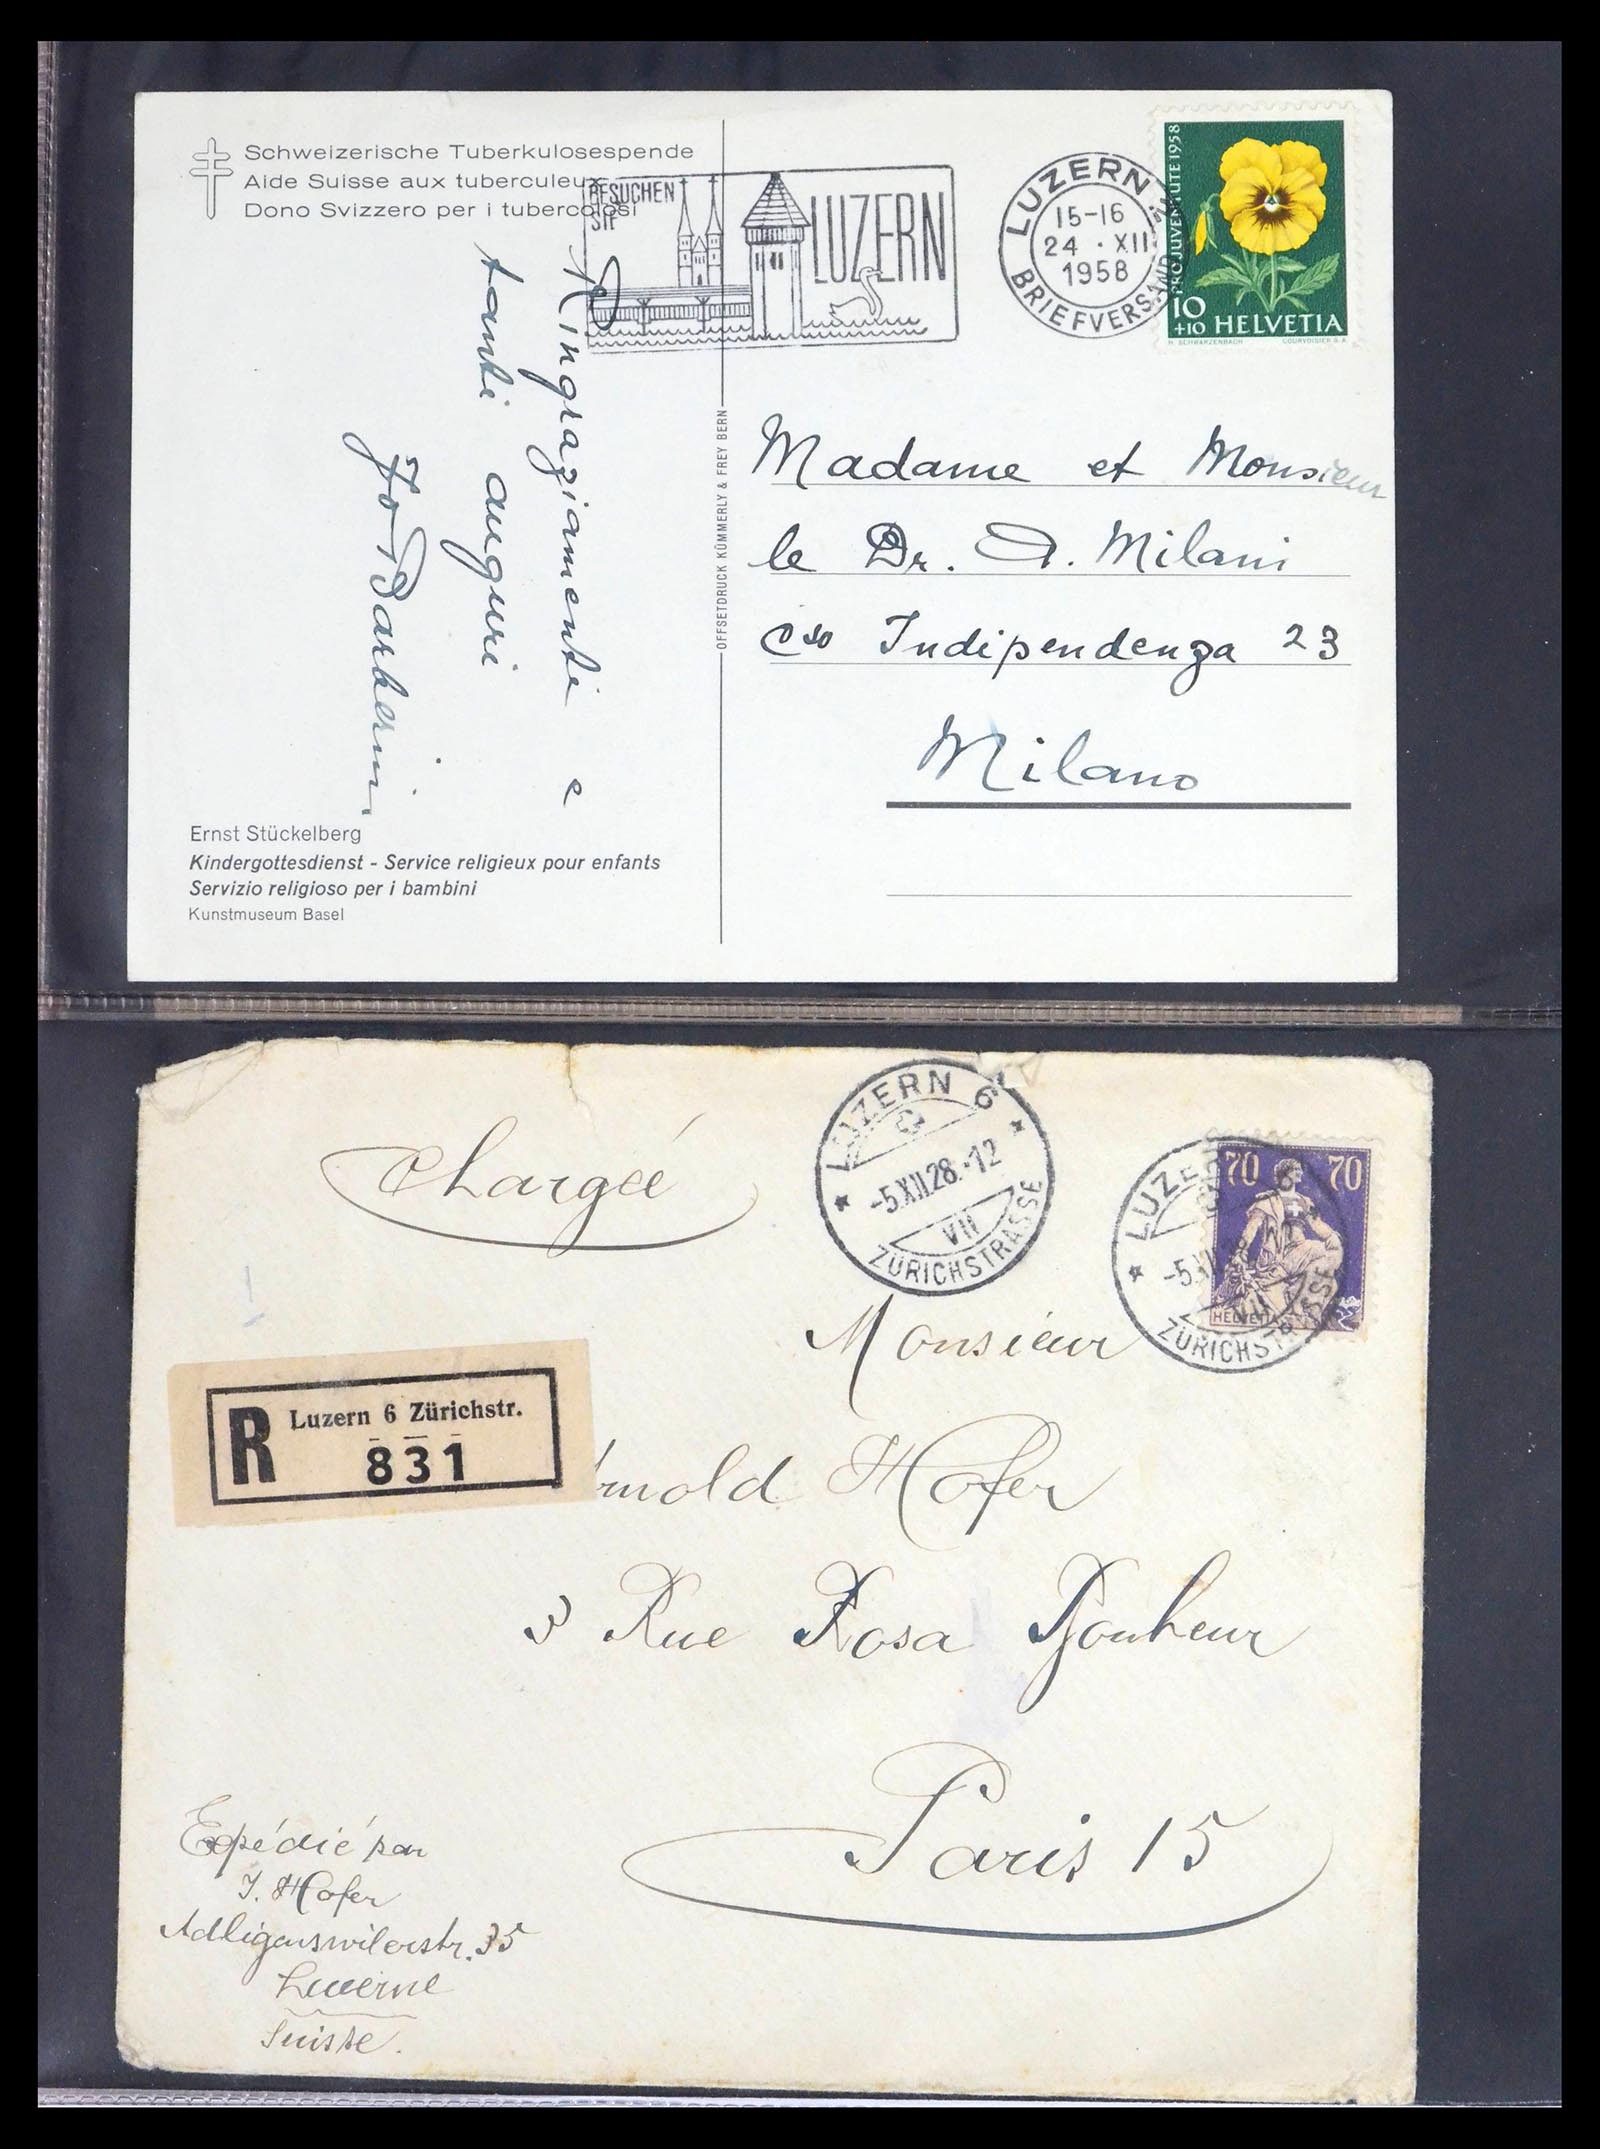 Schweizerische Tuberkulosespende
Aide Suisse aux tuberculeux
Dono Svizzero per i tubercolosi
BESUCHEN
SIE
LUZERN
LUZERN
15-16
24 · XII
1958
BRIEFVERSAND
PRO JUVENTUTE 1958
10
+10 HELVETIA
H. SCHWARZENBACH COURVOISIER S.A.
Ringraziamenti e
tanti auguri
OFFSETDRUCK KÜMMERLY & FREY BERN
Madame et Monsieur
le Dr. A. Milani
Cso Indipendenza 23
Milano
Ernst Stückelberg
Kindergottesdienst - Service religieux pour enfants
Servizio religioso per i bambini
Kunstmuseum Basel
Chargée
LUZERN 6
-5.XII.28.-12
VII
ZÜRICHSTRASSE
LUZERN
ZÜRICHSTRASSE
70 70
HELVETIA
Monsieur
R Luzern 6 Zürichstr.
831
rnold Hofer
3 Rue Rosa Bonheur
Paris 15
Expédié par
J. Hofer
Adligenswilerstr. 35
Lucerne
Suisse.